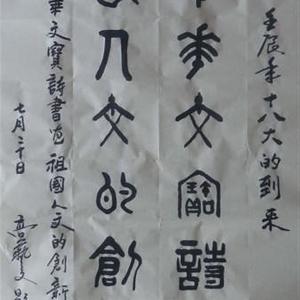 壬辰年十八大的到来
華文寶詩
人文的創
華文寶詩書道祖國人文的創新
七月二十日